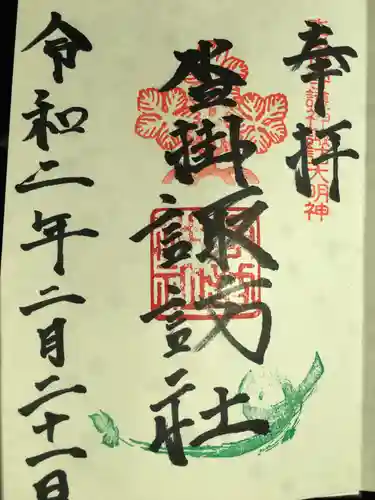 奉拝
大明神
沓掛諏訪社
令和二年二月二十一日